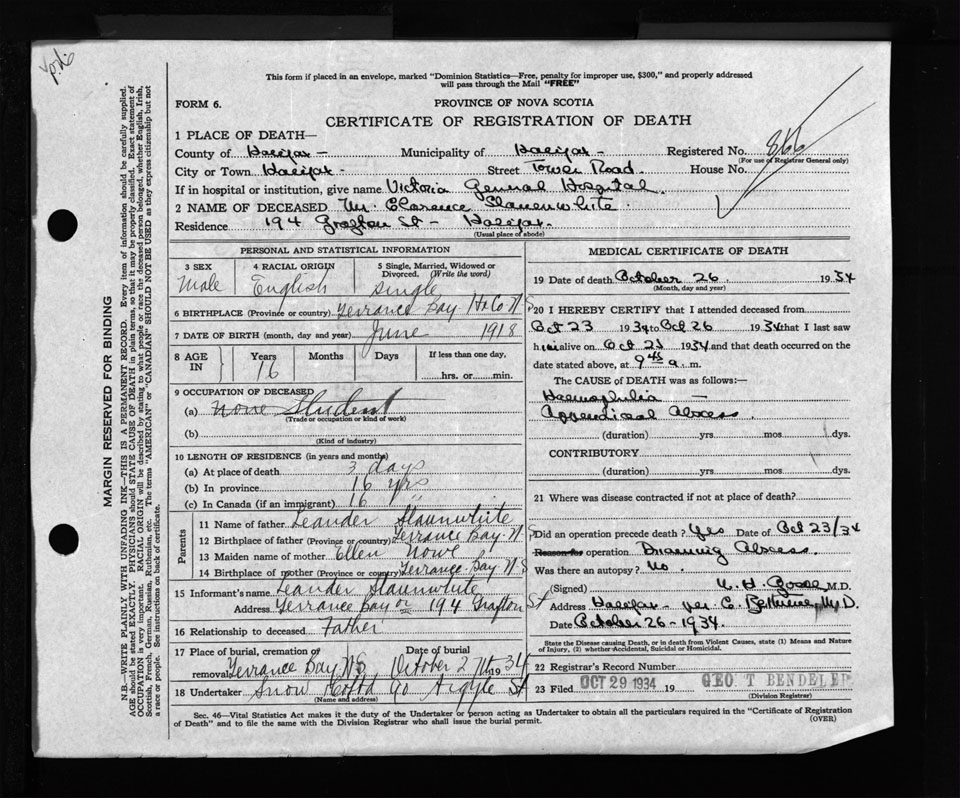 This form if placed in an envelope, marked "Dominion Statistics—Free, penalty for improper use, $300," and properly addressed
will pass through the Mail "FREE"
FORM 6.
PROVINCE OF NOVA SCOTIA
CERTIFICATE OF REGISTRATION OF DEATH
866
1 PLACE OF DEATH—
County of Halifax — Municipality of Halifax — Registered No.
(For use of Registrar General only)
City or Town Halifax — Street Tower Road. House No.
If in hospital or institution, give name Victoria General Hospital.
2 NAME OF DECEASED Mr. Clarence Slauenwhite
Residence 194 Grafton St — Halifax.
(Usual place of abode)
PERSONAL AND STATISTICAL INFORMATION
3 SEX Male
4 RACIAL ORIGIN English
5 Single, Married, Widowed or Divorced. (Write the word) Single
6 BIRTHPLACE (Province or country) Terrance Bay Hx Co N S
7 DATE OF BIRTH (month, day and year) June 1918
8 AGE IN Years 16 Months Days If less than one day, hrs. or min.
9 OCCUPATION OF DECEASED
(a) none Student
(Trade or occupation or kind of work)
(b)
(Kind of industry)
10 LENGTH OF RESIDENCE (in years and months)
(a) At place of death 3 days
(b) In province 16 yrs
(c) In Canada (if an immigrant) 16 "
Parents
11 Name of father Leander Slaunwhite
12 Birthplace of father (Province or country) Terrance Bay N S
13 Maiden name of mother Ellen Nowe
14 Birthplace of mother (Province or country) Terrance Bay N S
15 Informant's name Leander Slaunwhite
Address Terrance Bay or 194 Grafton St
16 Relationship to deceased Father
17 Place of burial, cremation or removal Terrance Bay NS Date of burial October 27th 1934
18 Undertaker Snow & Co Ltd 90 Argyle St
(Name and address)
MEDICAL CERTIFICATE OF DEATH
19 Date of death October 26 1934
(Month, day and year)
20 I HEREBY CERTIFY that I attended deceased from
Oct 23 1934 to Oct 26 1934 that I last saw
him alive on Oct 25 1934 and that death occurred on the
date stated above, at 9 45 a. m.
The CAUSE OF DEATH was as follows:—
Haemophilia —
Appendiceal Abscess.
(duration) yrs mos dys.
CONTRIBUTORY
(duration) yrs mos dys.
21 Where was disease contracted if not at place of death?
Did an operation precede death? Yes Date of Oct 23/34
Reason for operation Draining Abscess.
Was there an autopsy? No.
(Signed) M.D.
Address Halifax — per C. M.D.
Date October 26 - 1934
State the Disease causing Death, or in death from Violent Causes, state (1) Means and Nature
of Injury, (2) whether Accidental, Suicidal or Homicidal.
22 Registrar's Record Number
23 Filed OCT 29 1934 19 GEO T BENDELER
(Division Registrar)
Sec. 46—Vital Statistics Act makes it the duty of the Undertaker or person acting as Undertaker to obtain all the particulars required in the "Certificate of Registration
of Death" and to file the same with the Division Registrar who shall issue the burial permit.
(OVER)
MARGIN RESERVED FOR BINDING
N.B.—WRITE PLAINLY WITH UNFADING INK—THIS IS A PERMANENT RECORD. Every item of information should be carefully supplied.
AGE should be stated EXACTLY. PHYSICIANS should STATE CAUSE OF DEATH in plain terms, so that it may be properly classified. Exact statement of
OCCUPATION is very important. RACIAL ORIGIN will be described by stating to what people or race the deceased person belonged, whether English, Irish,
Scottish, French, German, Russian, Ruthenian, etc. The terms "AMERICAN" or "CANADIAN" SHOULD NOT BE USED as they express citizenship but not
a race or people. See instructions on back of certificate.